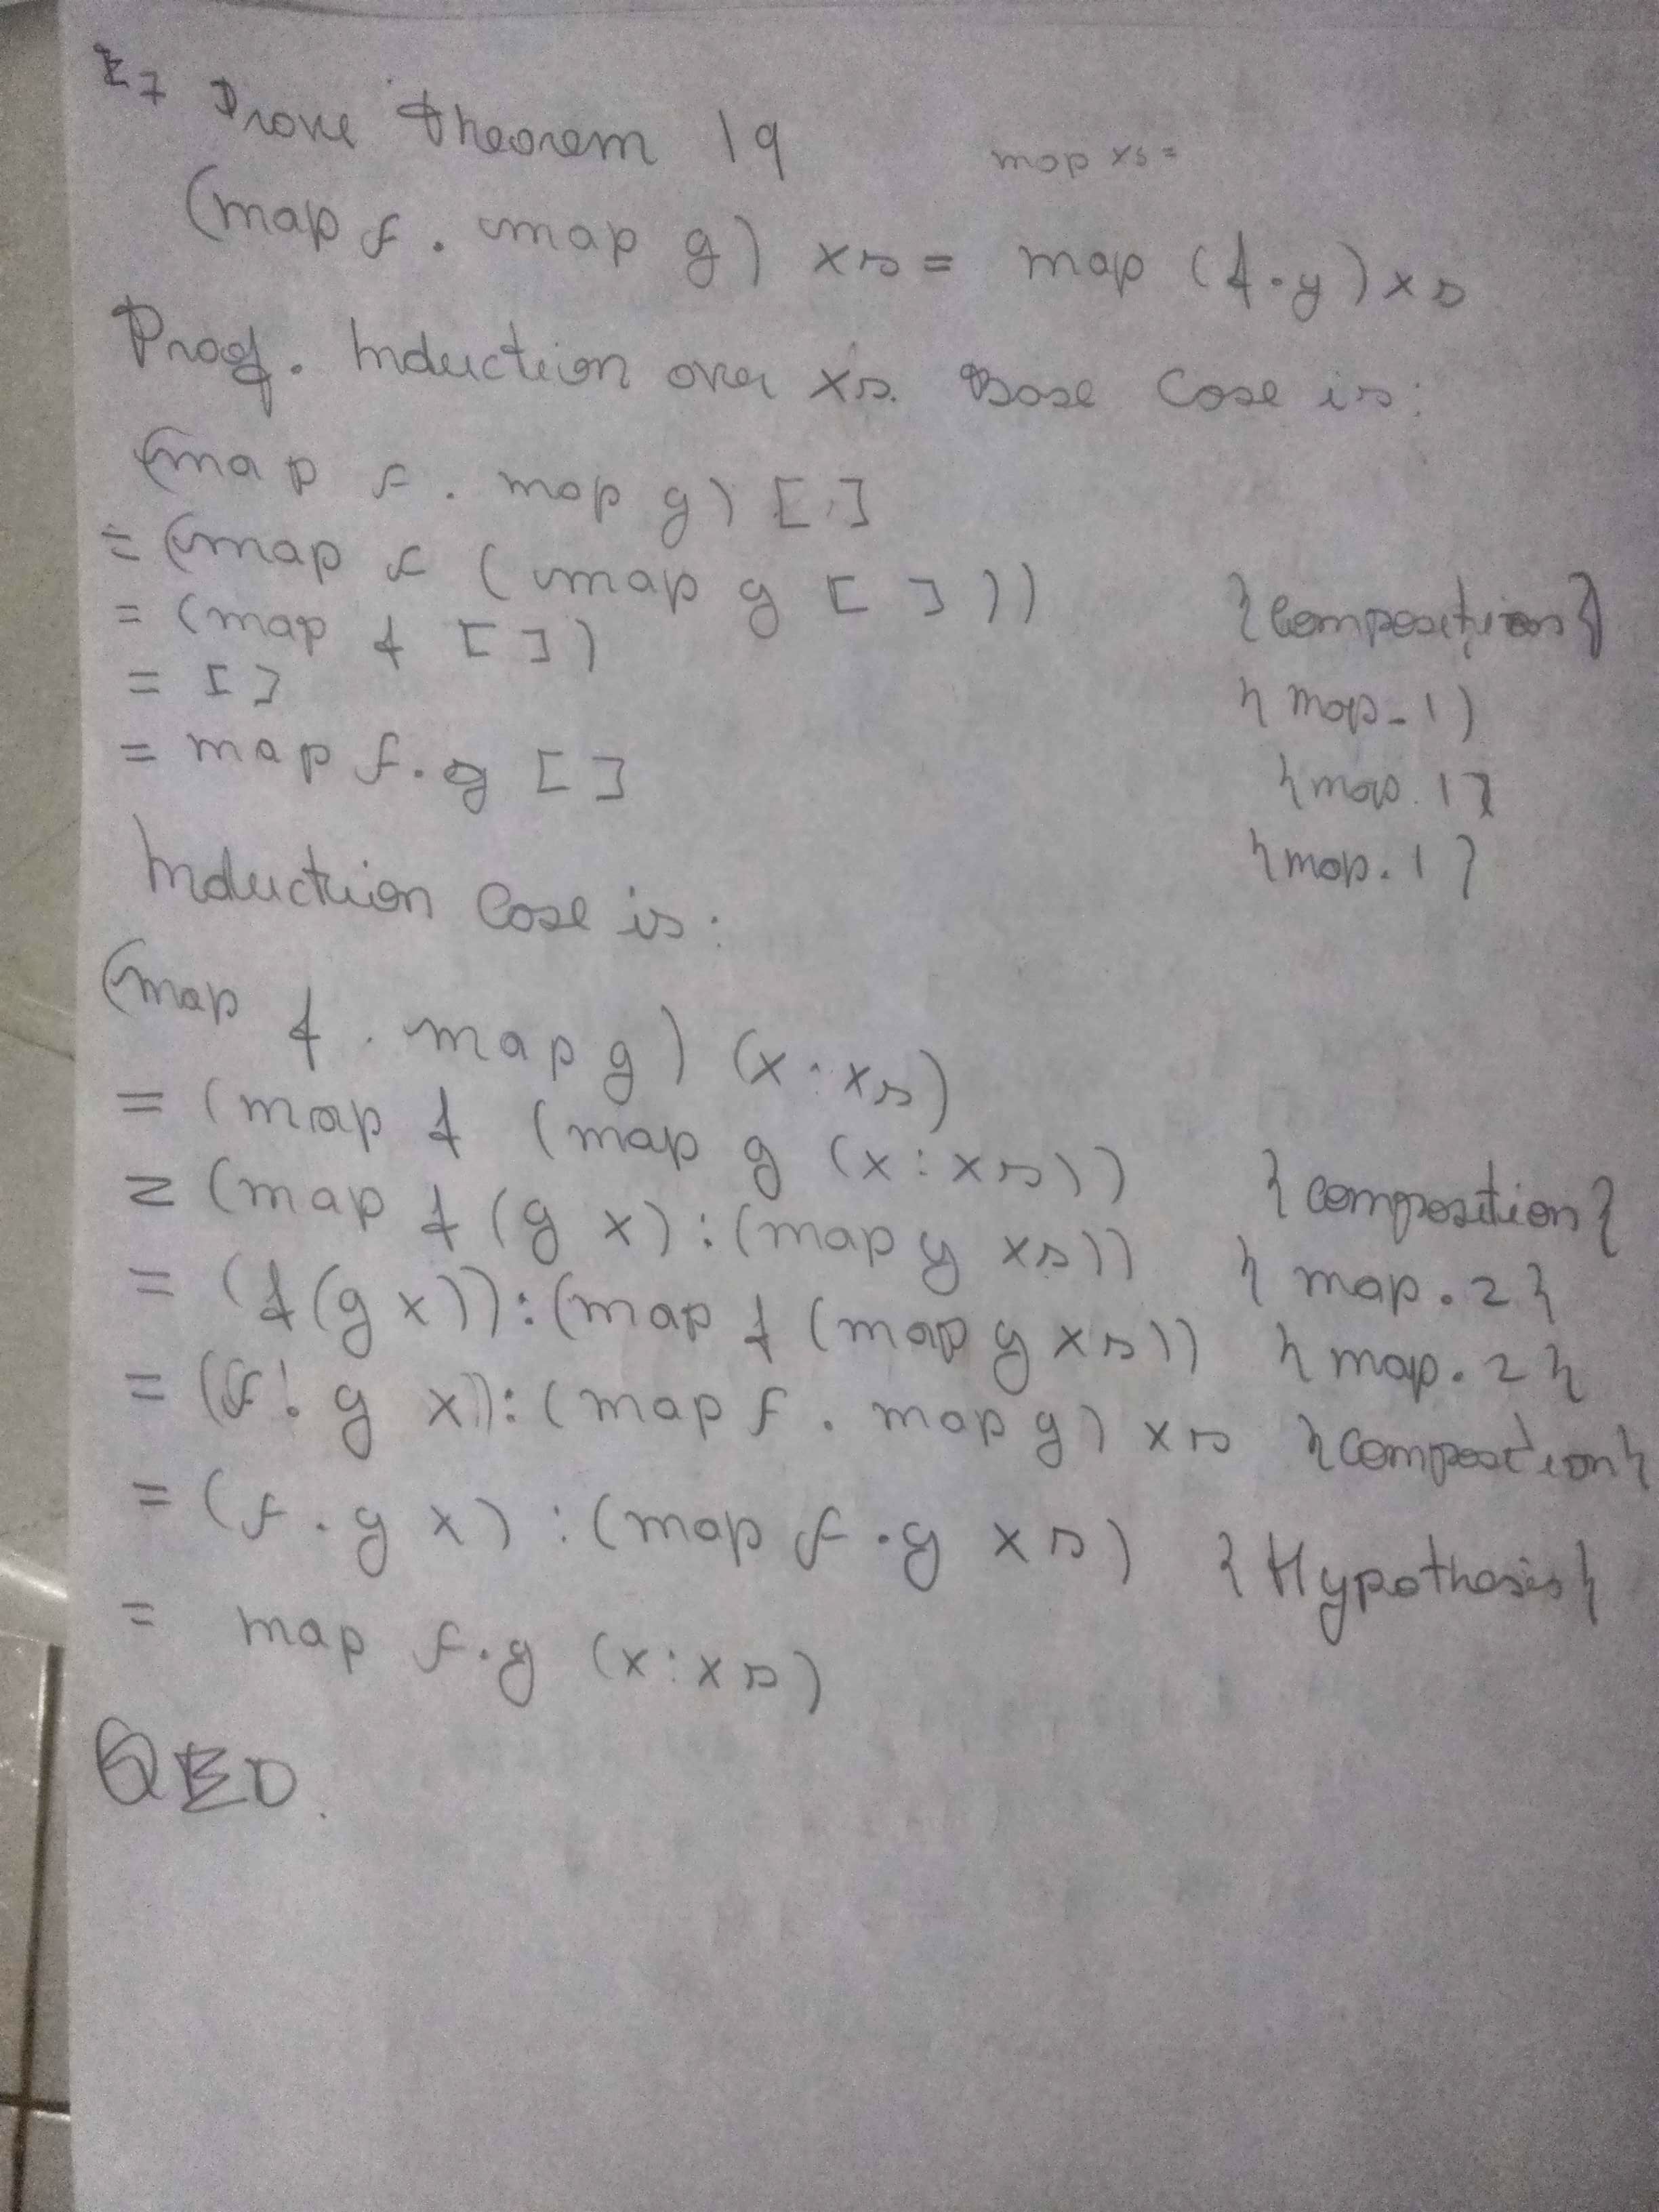 E7 Prove theorem 19
map xs =
(map f . map g) xs = map (f.g) xs
Proof. Induction over xs. Base Case is:
(map f . map g) []
= (map f (map g [])) {composition}
= (map f []) {map.1}
= [] {map.1}
= map f.g [] {map.1}
Induction Case is:
(map f . map g) (x:xs)
= (map f (map g (x:xs)) {composition}
= (map f (g x):(map g xs)) {map.2}
= (f(g x)):(map f (map g xs)) {map.2}
= (f . g x):(map f . map g) xs {composition}
= (f . g x) : (map f .g xs) {Hypothesis}
= map f.g (x:xs)
QED.